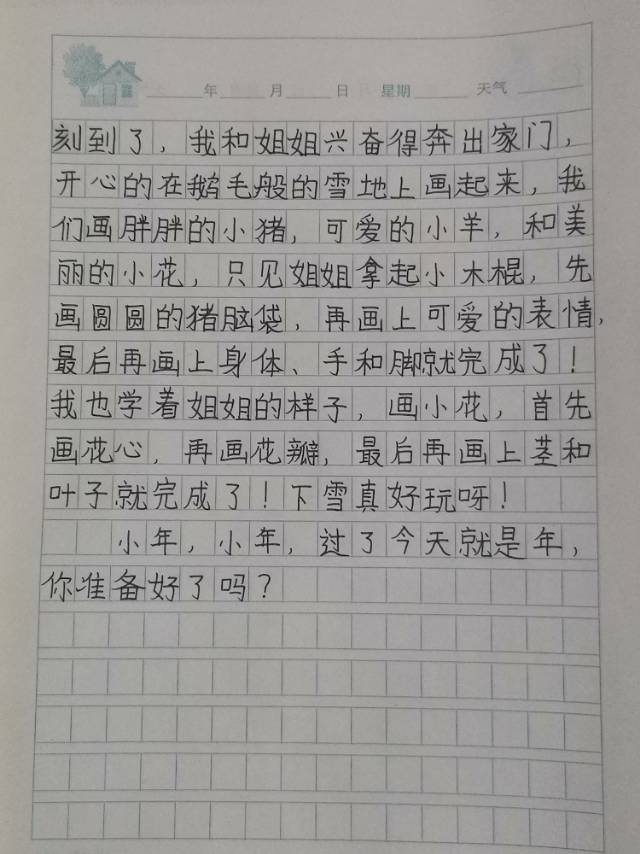 年 月 日 星期 天气
刻到了，我和姐姐兴奋得奔出家门，
开心的在鹅毛般的雪地上画起来，我
们画胖胖的小猪，可爱的小羊，和美
丽的小花，只见姐姐拿起小木棍，先
画圆圆的猪脑袋，再画上可爱的表情，
最后再画上身体、手和脚就完成了！
我也学着姐姐的样子，画小花，首先
画花心，再画花瓣，最后再画上茎和
叶子就完成了！下雪真好玩呀！
小年，小年，过了今天就是年，
你准备好了吗？